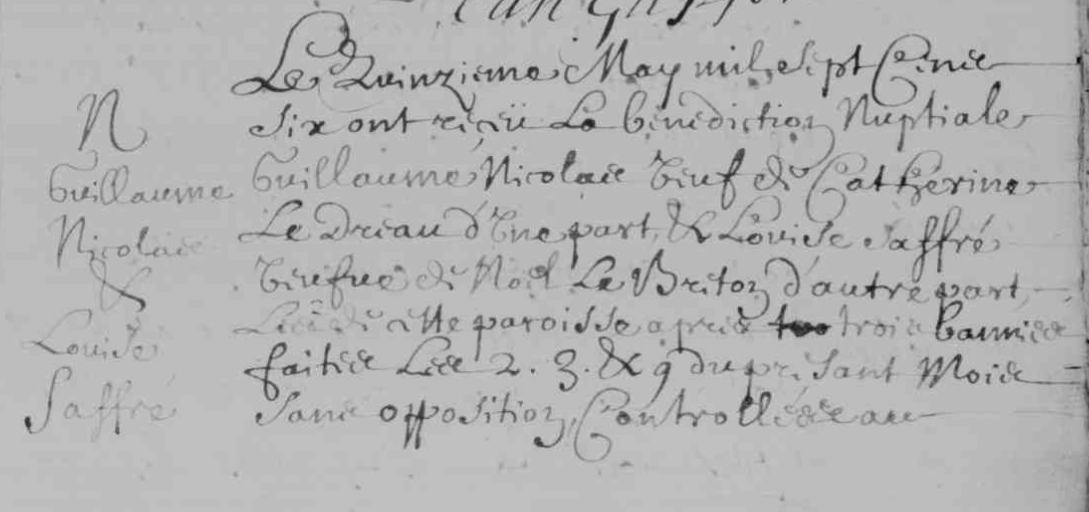 Le Quinzieme May mil sept Cents
six ont receü La benediction Nuptiale
Guillaume Nicolas veuf de Catherine
Le Dreau d'Une part, & Louise Saffré
veufue de Noël Le Breton d'autre part
de cette paroisse apres trois bannies
faites Les 2. 3. & 9 du present Mois
sans opposition, Controllées au
N
Guillaume
Nicolas
&
Louise
Saffré